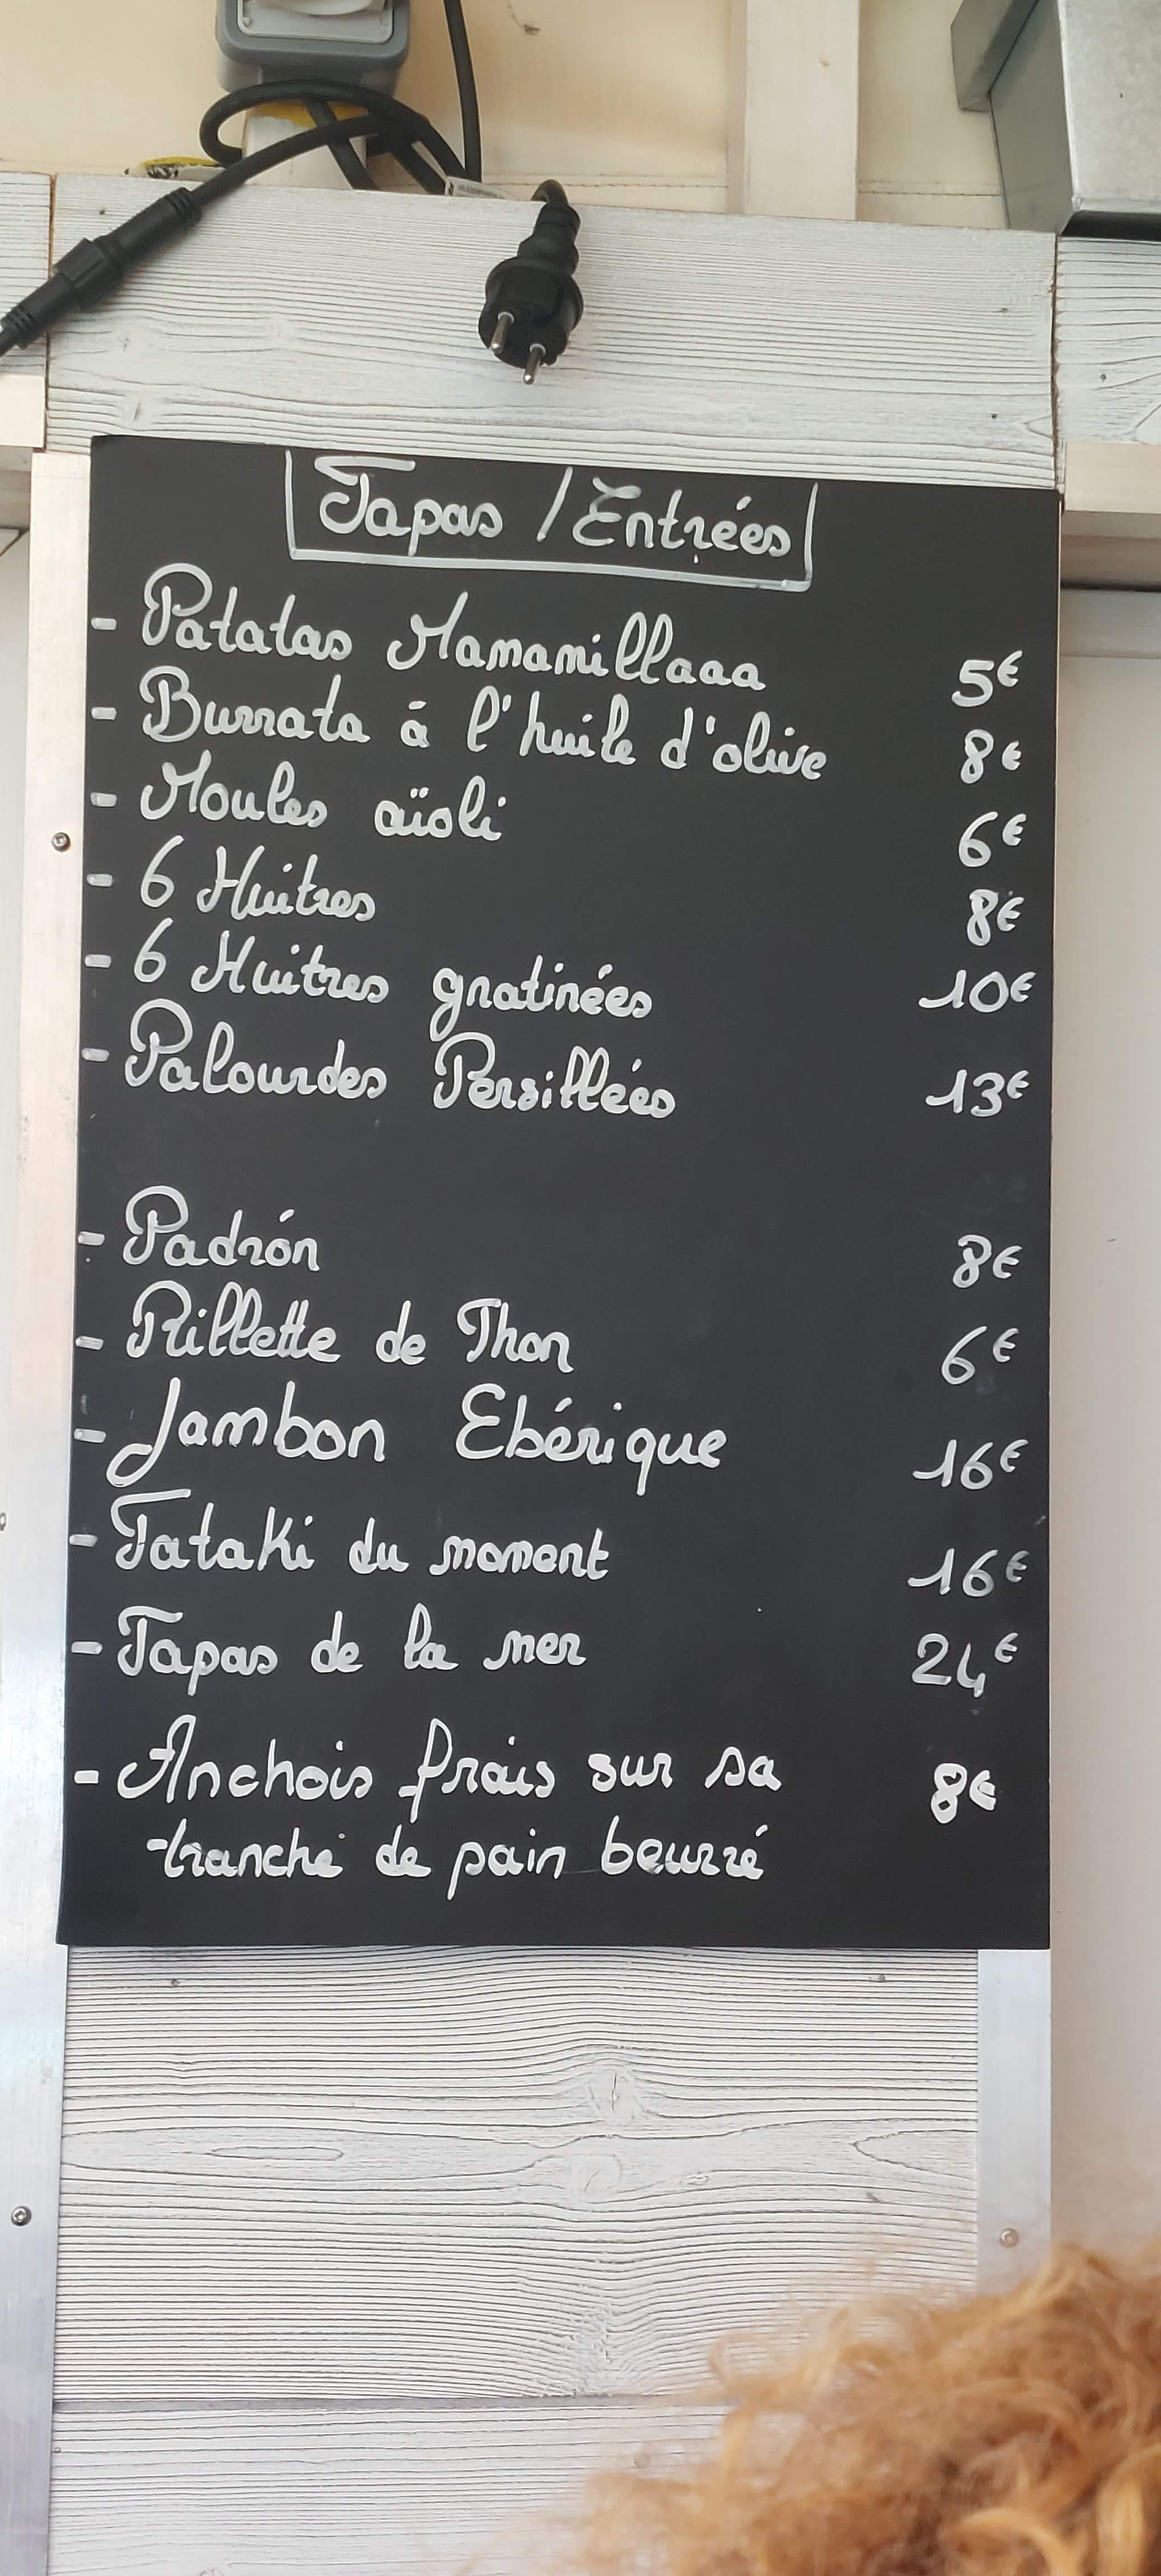 Tapas / Entrées
- Patatas Mamamillaaa 5€
- Burrata à l'huile d'olive 8€
- Moules aïoli 6€
- 6 Huitres 8€
- 6 Huitres gratinées 10€
- Palourdes Persillées 13€
- Padrón 8€
- Rillette de Thon 6€
- Jambon Ebérique 16€
- Tataki du moment 16€
- Tapas de la mer 24€
- Anchois frais sur sa 8€
tranche de pain beurré